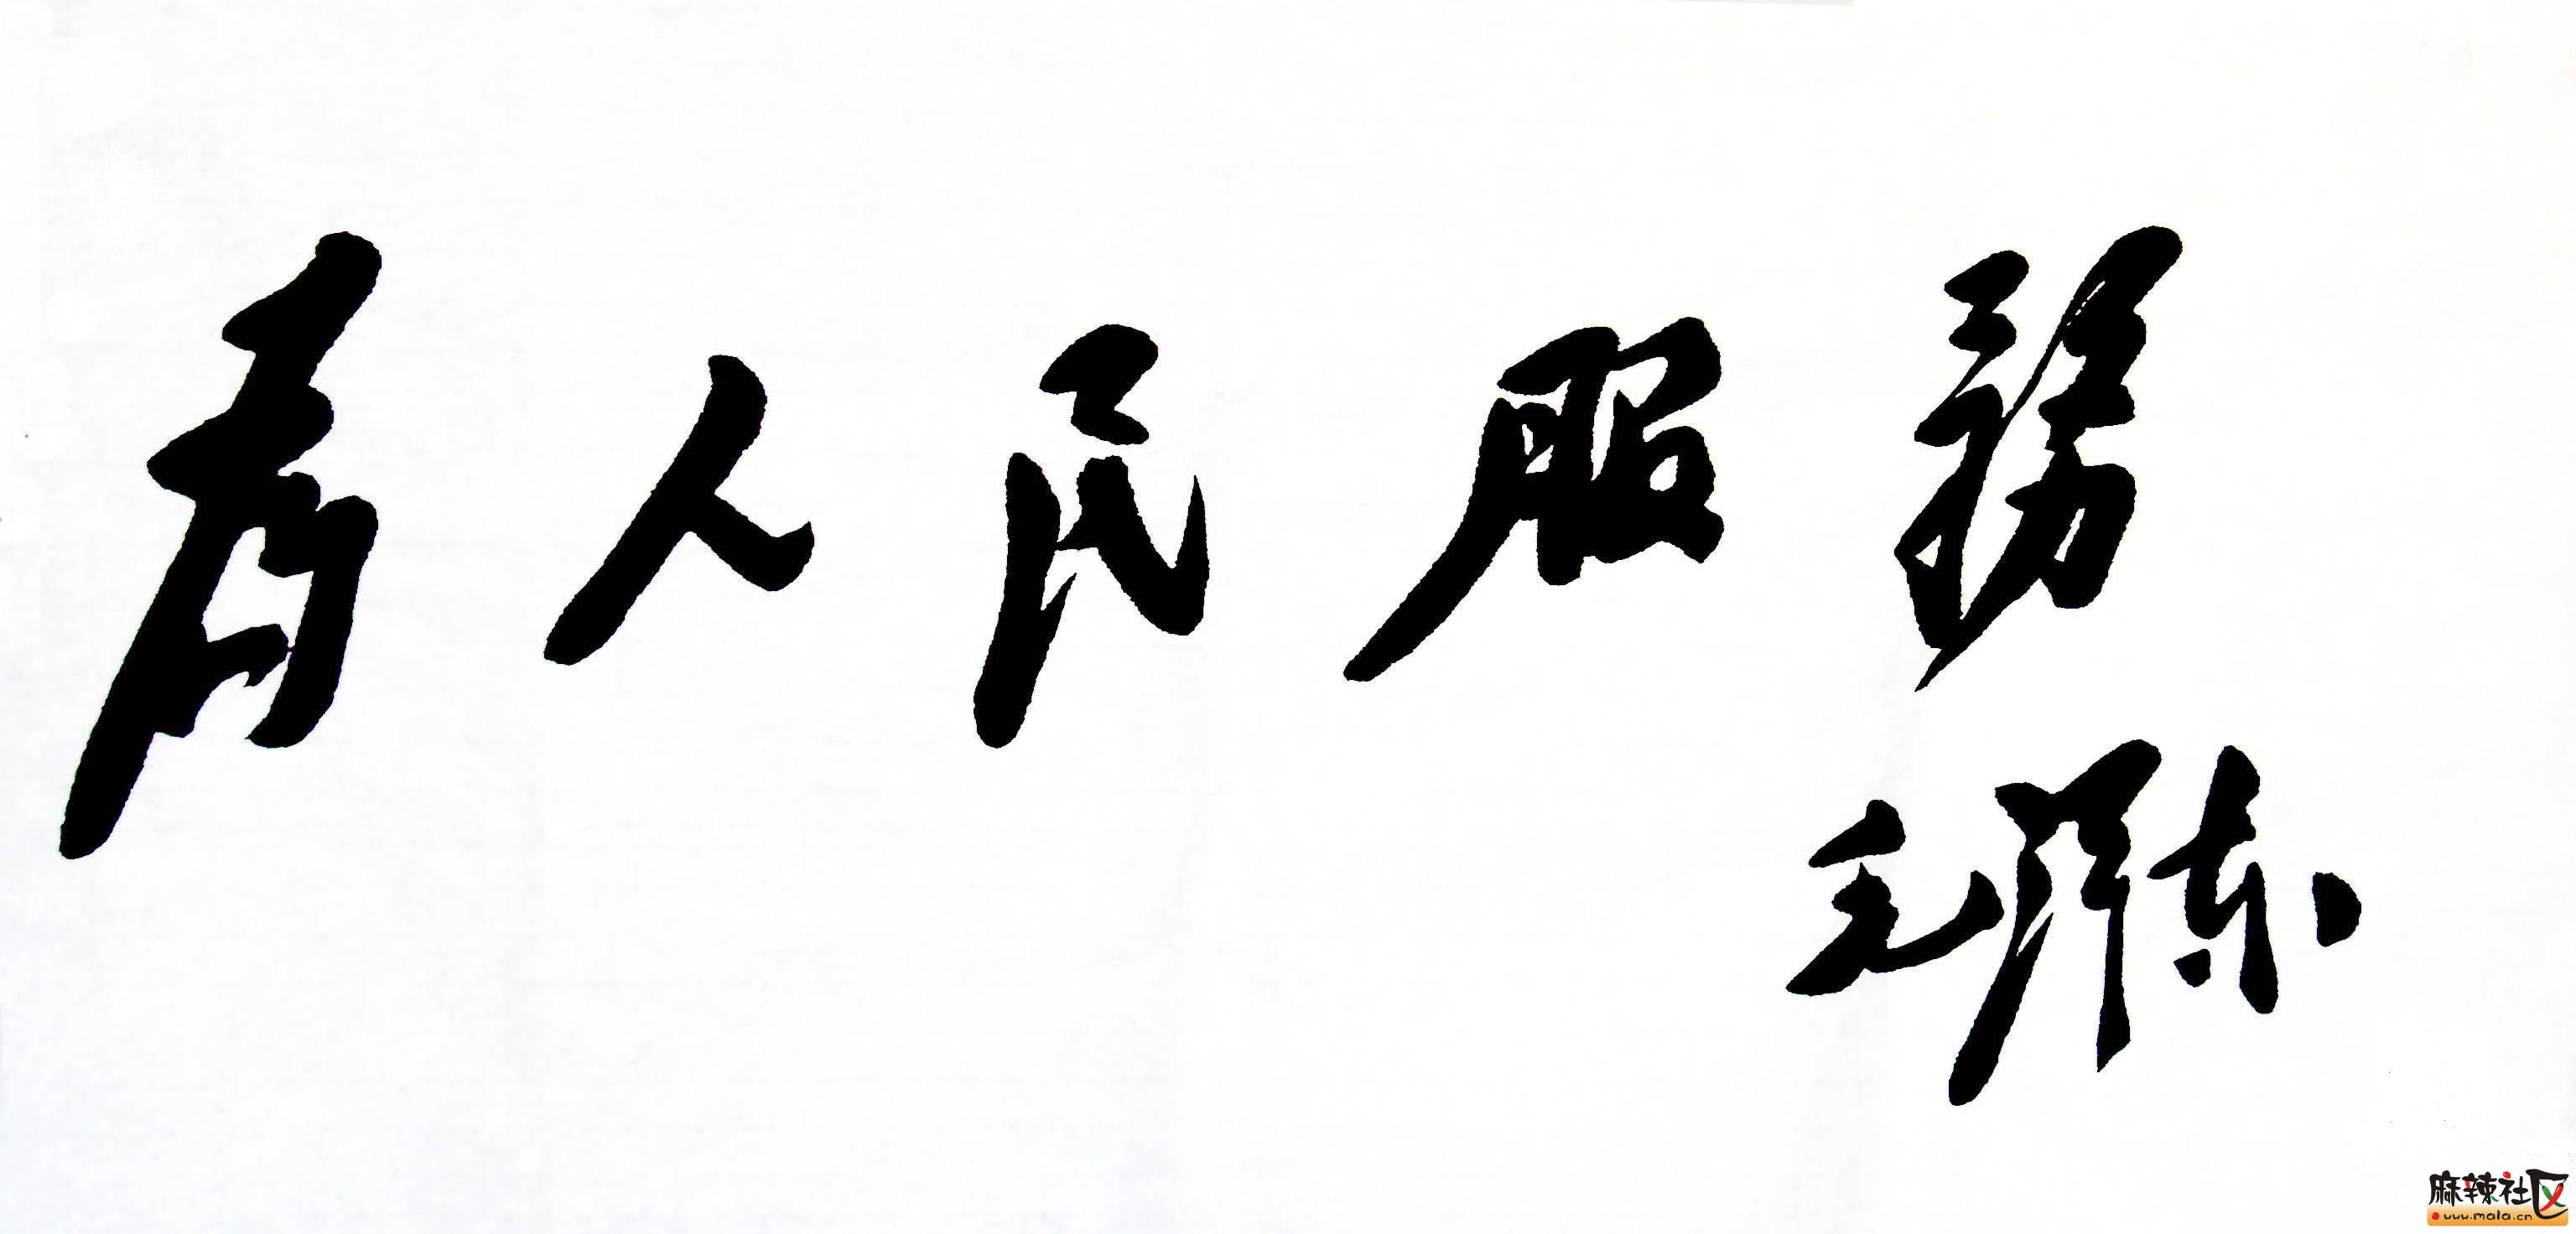 为人民服務
毛泽东
麻辣社区
www.mala.cn